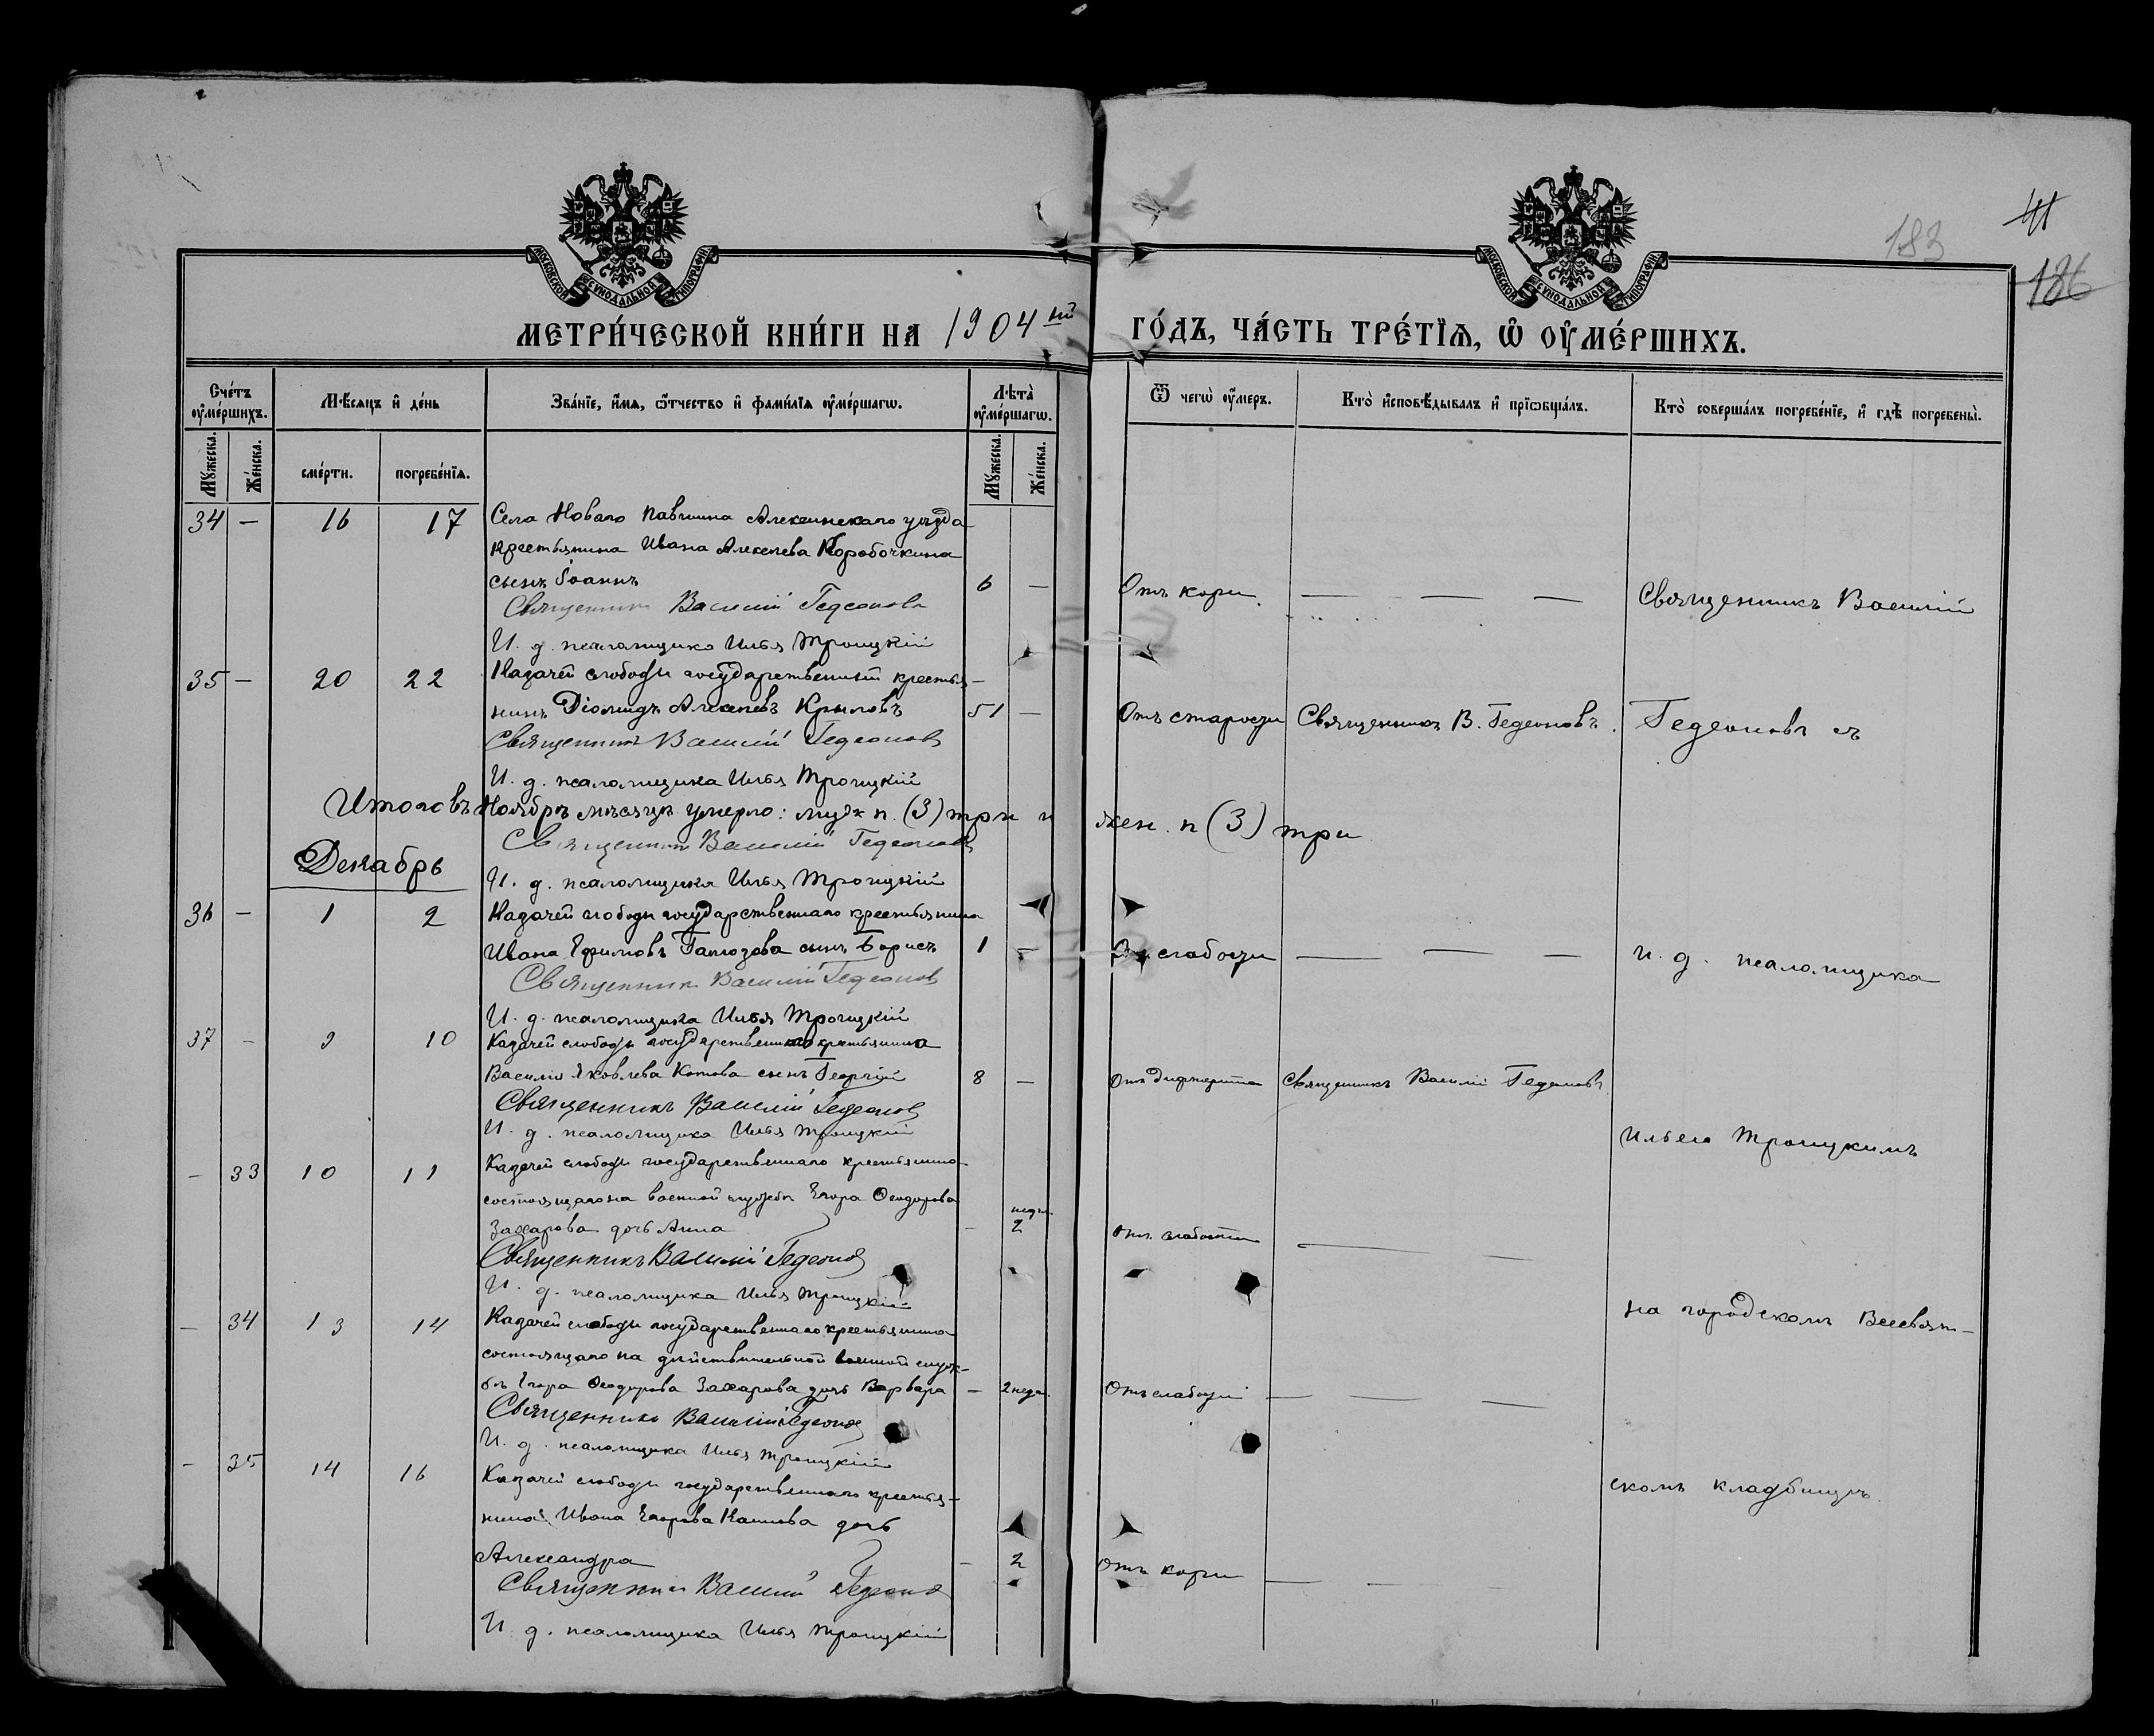 183
41
186
МОСКОВСКОЙ СѴНОДАЛЬНОЙ ТИПОГРАФІИ
МОСКОВСКОЙ СѴНОДАЛЬНОЙ ТИПОГРАФІИ
МЕТРИ́ЧЕСКОЙ КНИ́ГИ НА 1904 ый ГО́ДЪ, ЧА́СТЬ ТРЕ́ТЇѦ, Ѽ ОУ҆МЕ́РШИХЪ.
Сче́тъ оу҆ме́ршихъ.
Мѣ́сяцъ и҆ де́нь
Зва́нїе, и҆́мѧ, ѻ҆́тчество и҆ фами́лїѧ оу҆ме́ршагѡ.
Лѣта̀ оу҆ме́ршагѡ.
Ѿ чегѡ̀ оу҆́меръ.
Кто̀ и҆сповѣ́дывалъ и҆ прїѡбща́лъ.
Кто̀ соверша́лъ погребе́нїе, и҆ гдѣ̀ погребены̀.
Мꙋ́жеска.
Же́нска.
сме́рти.
погребе́нїѧ.
Мꙋ́жеска.
Же́нска.
34 — 16 17 Села Новаго Павшина Алексинскаго уѣзда
крестьянина Ивана Алексѣева Коробочкина
сынъ Іоаннъ 6 — Отъ кори — — — Священникъ Василій
Священникъ Василій Гедеоновъ
И. д. псаломщика Илья Троицкій
35 — 20 22 Казачей слободы государственный крестья-
нинъ Діомидъ Алексѣевъ Крыловъ 51 — Отъ старости Священникъ В. Гедеоновъ. Гедеоновъ съ
Священникъ Василій Гедеоновъ
И. д. псаломщика Илья Троицкій
Итого въ Ноябрѣ мѣсяцѣ умерло: муж п. (3) три и жен. п (3) три
Священникъ Василій Гедеоновъ
Декабрь
И. д. псаломщика Илья Троицкій
36 — 1 2 Казачей слободы государственнаго крестьянина
Ивана Ефимовъ сынъ Борисъ 1 — Отъ слабости — — — и. д. псаломщика
Священникъ Василій Гедеоновъ
И. д. псаломщика Илья Троицкій
37 — 9 10 Казачей слободы государственнаго крестьянина
Василія Яковлева Котова сынъ Георгій 8 — Отъ дифтерита Священникъ Василій Гедеоновъ
Священникъ Василій Гедеоновъ
И. д. псаломщика Илья Троицкій
Ильею Троицкимъ
— 33 10 11 Казачей слободы государственнаго крестьянина
состоящаго на военной службѣ Егора Ѳеодорова
Захарова дочь Анна — 2 недѣл. Отъ слабости — —
Священникъ Василій Гедеоновъ
И. д. псаломщика Илья Троицкій
на городскомъ Всесвят-
— 34 13 14 Казачей слободы государственнаго крестьянина
состоящаго на дѣйствительной военной служ-
бѣ Егора Ѳеодорова Захарова дочь Варвара — 2 недѣл. Отъ слабости — — —
Священникъ Василій Гедеоновъ
И. д. псаломщика Илья Троицкій
— 35 14 16 Казачей слободы государственнаго крестья-
скомъ кладбищѣ.
нина Ивана Егорова дочь
Александра — 2 Отъ кори — — —
Священникъ Василій Гедеоновъ
И. д. псаломщика Илья Троицкій